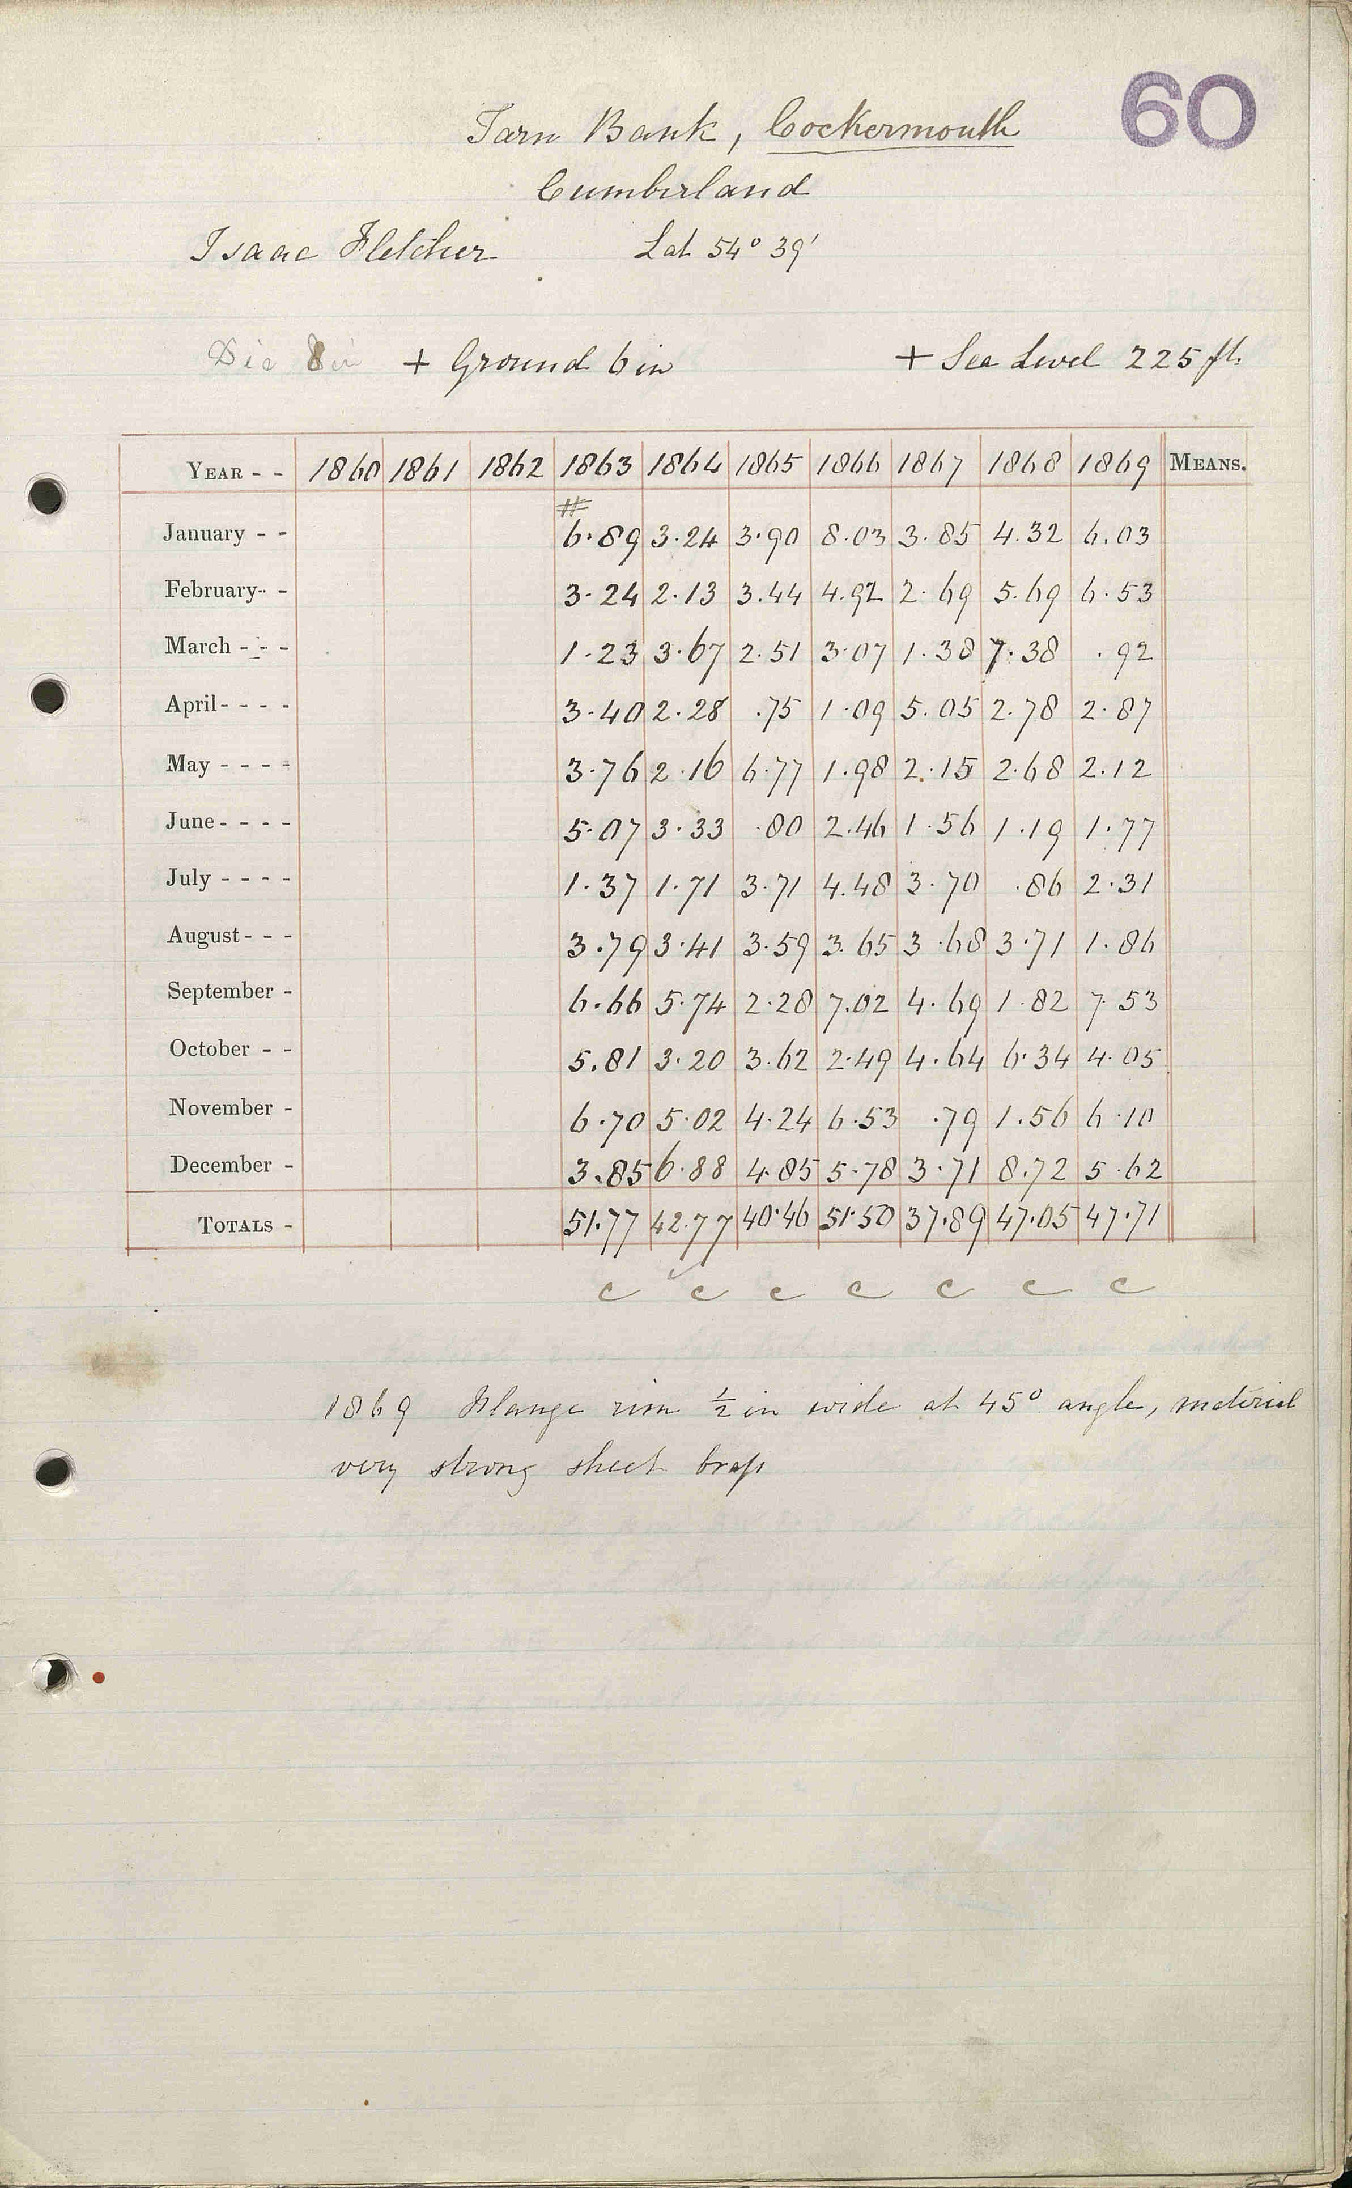 60
Tarn Bank, Cockermouth
Cumberland
Isaac Fletcher Lat 54° 39'
Dia 8 in + Ground 6 in + Sea Level 225 ft.
YEAR - - 1860 1861 1862 1863 1864 1865 1866 1867 1868 1869 MEANS.
#
January - - 6.89 3.24 3.90 8.03 3.85 4.32 6.03
February - - 3.24 2.13 3.44 4.92 2.69 5.69 6.53
March - - - 1.23 3.67 2.51 3.07 1.38 7.38 .92
April - - - - 3.40 2.28 .75 1.09 5.05 2.78 2.87
May - - - - 3.76 2.16 6.77 1.98 2.15 2.68 2.12
June - - - - 5.07 3.33 .80 2.46 1.56 1.19 1.77
July - - - - 1.37 1.71 3.71 4.48 3.70 .86 2.31
August - - - 3.79 3.41 3.59 3.65 3.68 3.71 1.86
September - 6.66 5.74 2.28 7.02 4.69 1.82 7.53
October - - 5.81 3.20 3.62 2.49 4.64 6.34 4.05
November - 6.70 5.02 4.24 6.53 .79 1.56 6.10
December - 3.85 6.88 4.85 5.78 3.71 8.72 5.62
TOTALS - 51.77 42.77 40.46 51.50 37.89 47.05 47.71
c c c c c c c
1869 Flange rim ½ in wide at 45° angle, material
very strong sheet brass